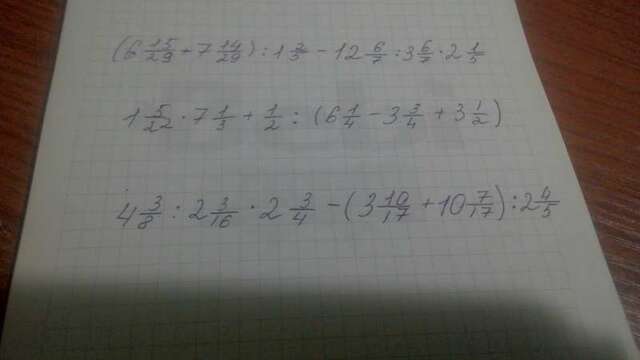 (6 15/29 + 7 14/29) : 1 2/5 - 12 6/7 : 3 6/7 · 2 1/5
1 5/22 · 7 1/3 + 1/2 : (6 1/4 - 3 3/4 + 3 1/2)
4 3/8 : 2 3/16 · 2 3/4 - (3 10/17 + 10 7/17) : 2 4/5